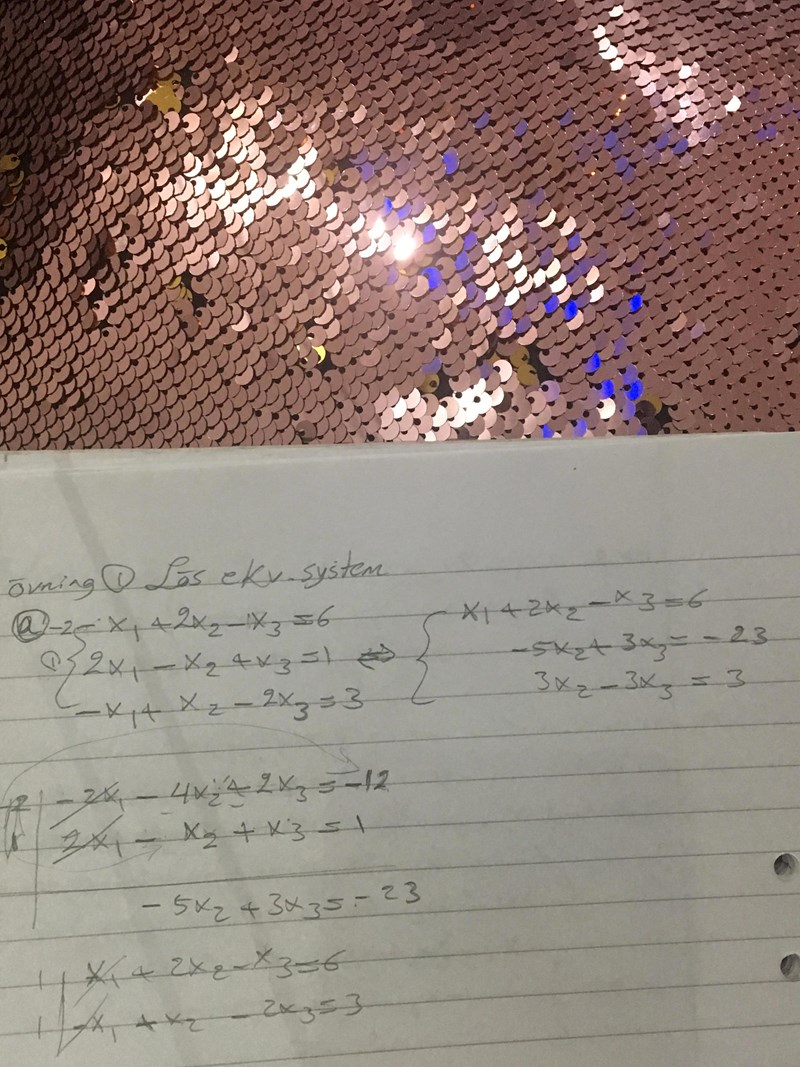 övning ① Lös ekv. system
ⓐ -2 - x₁ + 2x₂ - x₃ = 6
① 2x₁ - x₂ + x₃ = 1 ⇔
-x₁ + x₂ - 2x₃ = 3
x₁ + 2x₂ - x₃ = 6
-5x₂ + 3x₃ = -23
3x₂ - 3x₃ = 3
-2x₁ - 4x₂ + 2x₃ = -12
2x₁ - x₂ + x₃ = 1
-5x₂ + 3x₃ = -23
1 | x₁ + 2x₂ - x₃ = 6
1 | -x₁ + x₂ - 2x₃ = 3